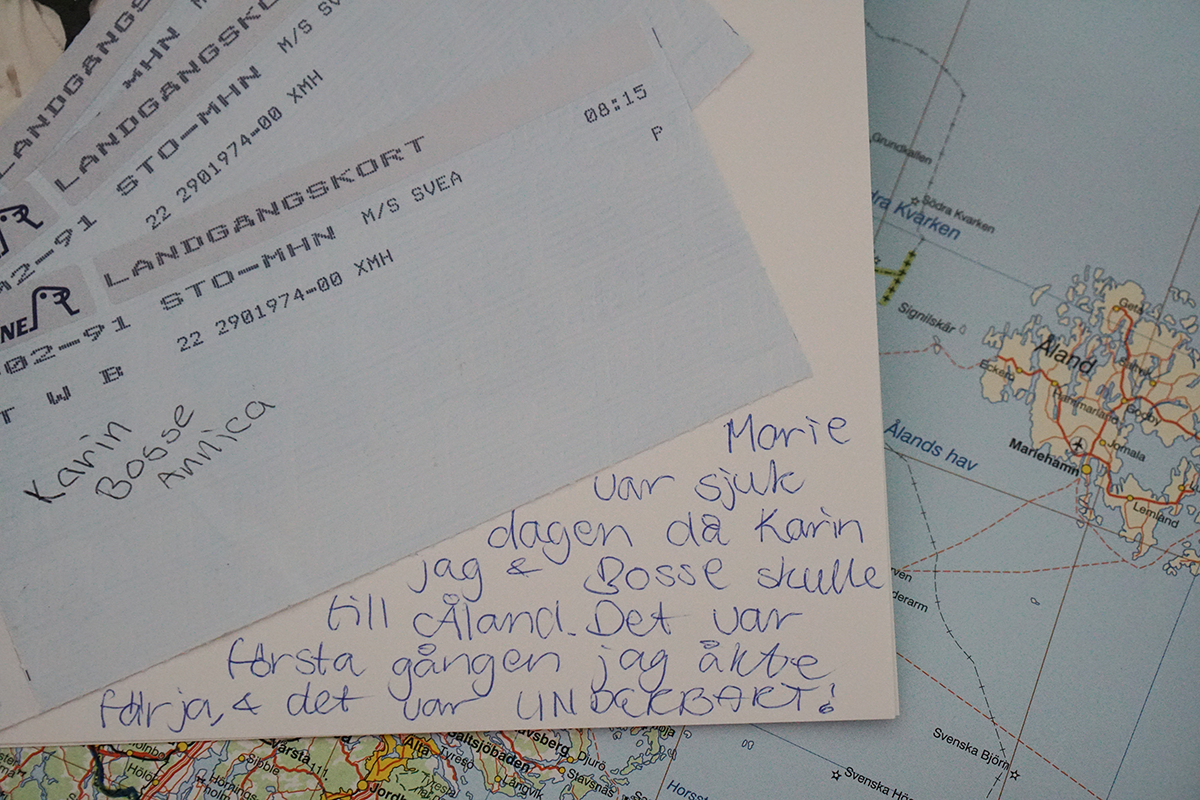 LANDGANGS
MHN
LANDGANGSKO
M/S SV
STO-MHN
22 2901974-00 XMH
02-91
LANDGANGSKORT
08:15
STO-MHN M/S SVEA
P
NE
02-91
22 2901974-00 XMH
T W B
Karin
Bosse
Annica
Marie
var sjuk
dagen då Karin
jag & Bosse skulle
till Åland. Det var
första gången jag åkte
färja, & det var UNDERBART!
Grundkallen
Södra Kvarken
dra Kvarken
Signilskär
Åland
Geta
Eckerö
Hammarland
Godby
Ålands hav
Mariehamn
Jomala
Lemland
rven
derarm
Svenska Björn
Svenska Hö
Horsst
Värsta
Sibble
Älta
Saltsjöbaden
vsberg
Djurö
Stavsnäs
Långvik
Tyresö
Jord
Hölö